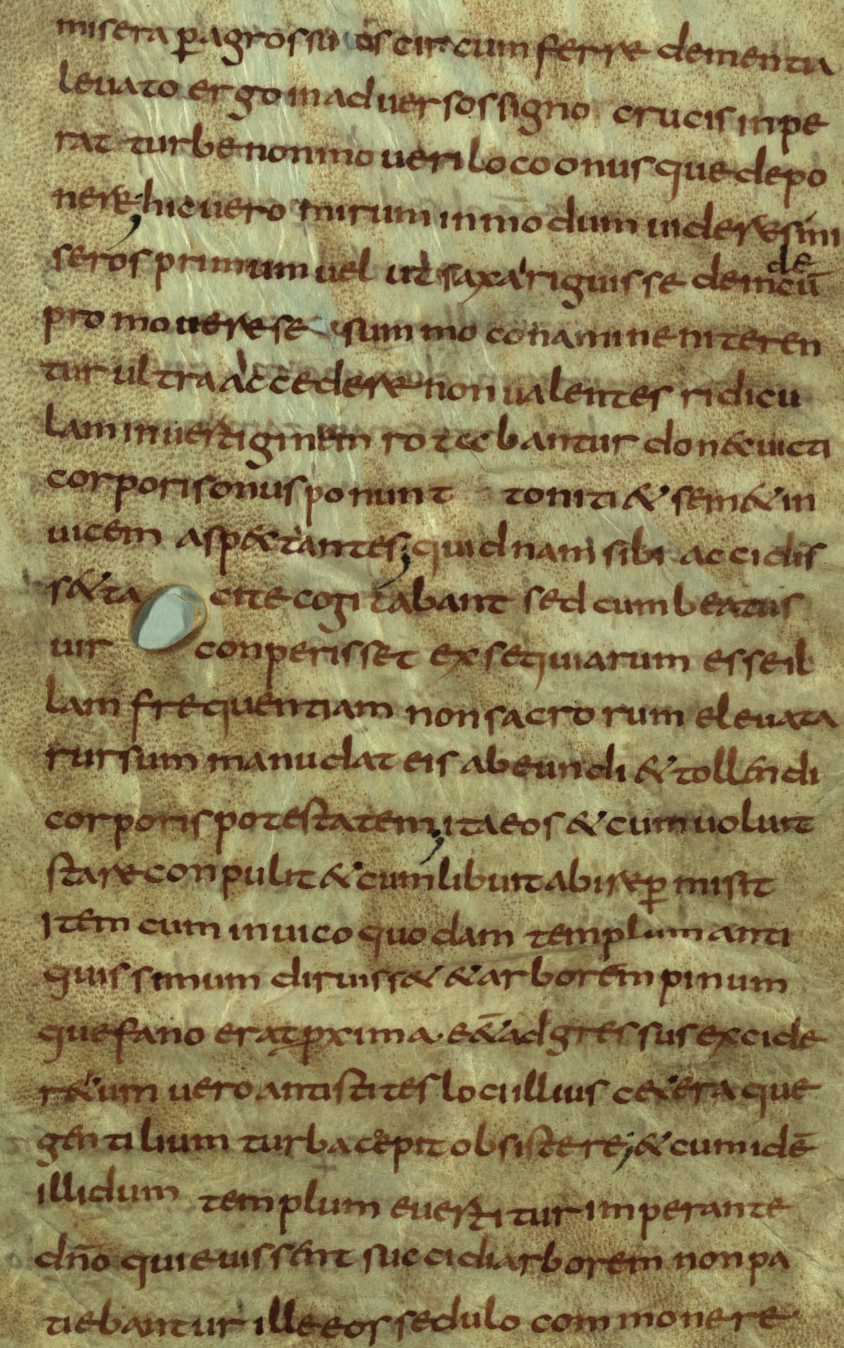 misera p̱agrossu os circum ferre dementia
leuato ergo in aduersos signo crucis inpe
rat turbe non moueri loco onus que depo
nere; hic uero mirum in modum uideres mi
seros primum uel ut saxa riguisse deindecū
promouere se summo conamine niteren
tur ultra accedere non ualentes ridicu
lam in uertiginem rotabantur donec uicti
corporis onus ponunt toniti & sem& in
uicem aspectantes; quidnam sibi accidis
s& tacite cogitabant sed cum beatus
uir conperisset exsequiarum esse il
lam frequentiam non sacrorum eleuata
rursum manu dat eis abeundi & tollendi
corporis potestatem; ita eos & cum uoluit
stare conpulit & cum libuit abire p̱misit
Item cum in uico quodam templum anti
quissimum diruiss& & arborem pinum
que fano erat p̱xima ēet adgressus excide
r& tum uero antistites loci illius cetera que
gentilium turba cepit obsistere; & cum idē
illi dum templum euertitur imperante
dn̄o quieuissent succidi arborem non pa
tiebantur ille eos sedulo commonere